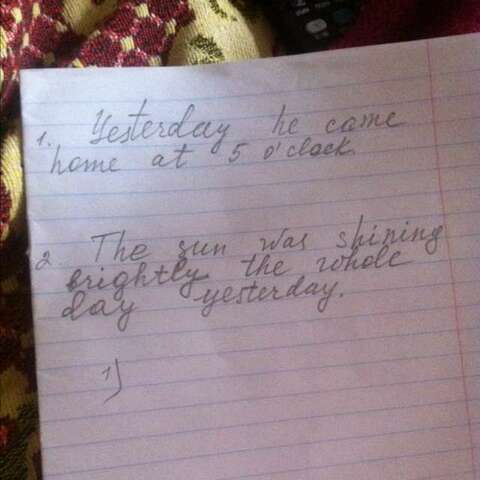 1. Yesterday he came
home at 5 o'clock.
2. The sun was shining
brightly the whole
day yesterday.
1)